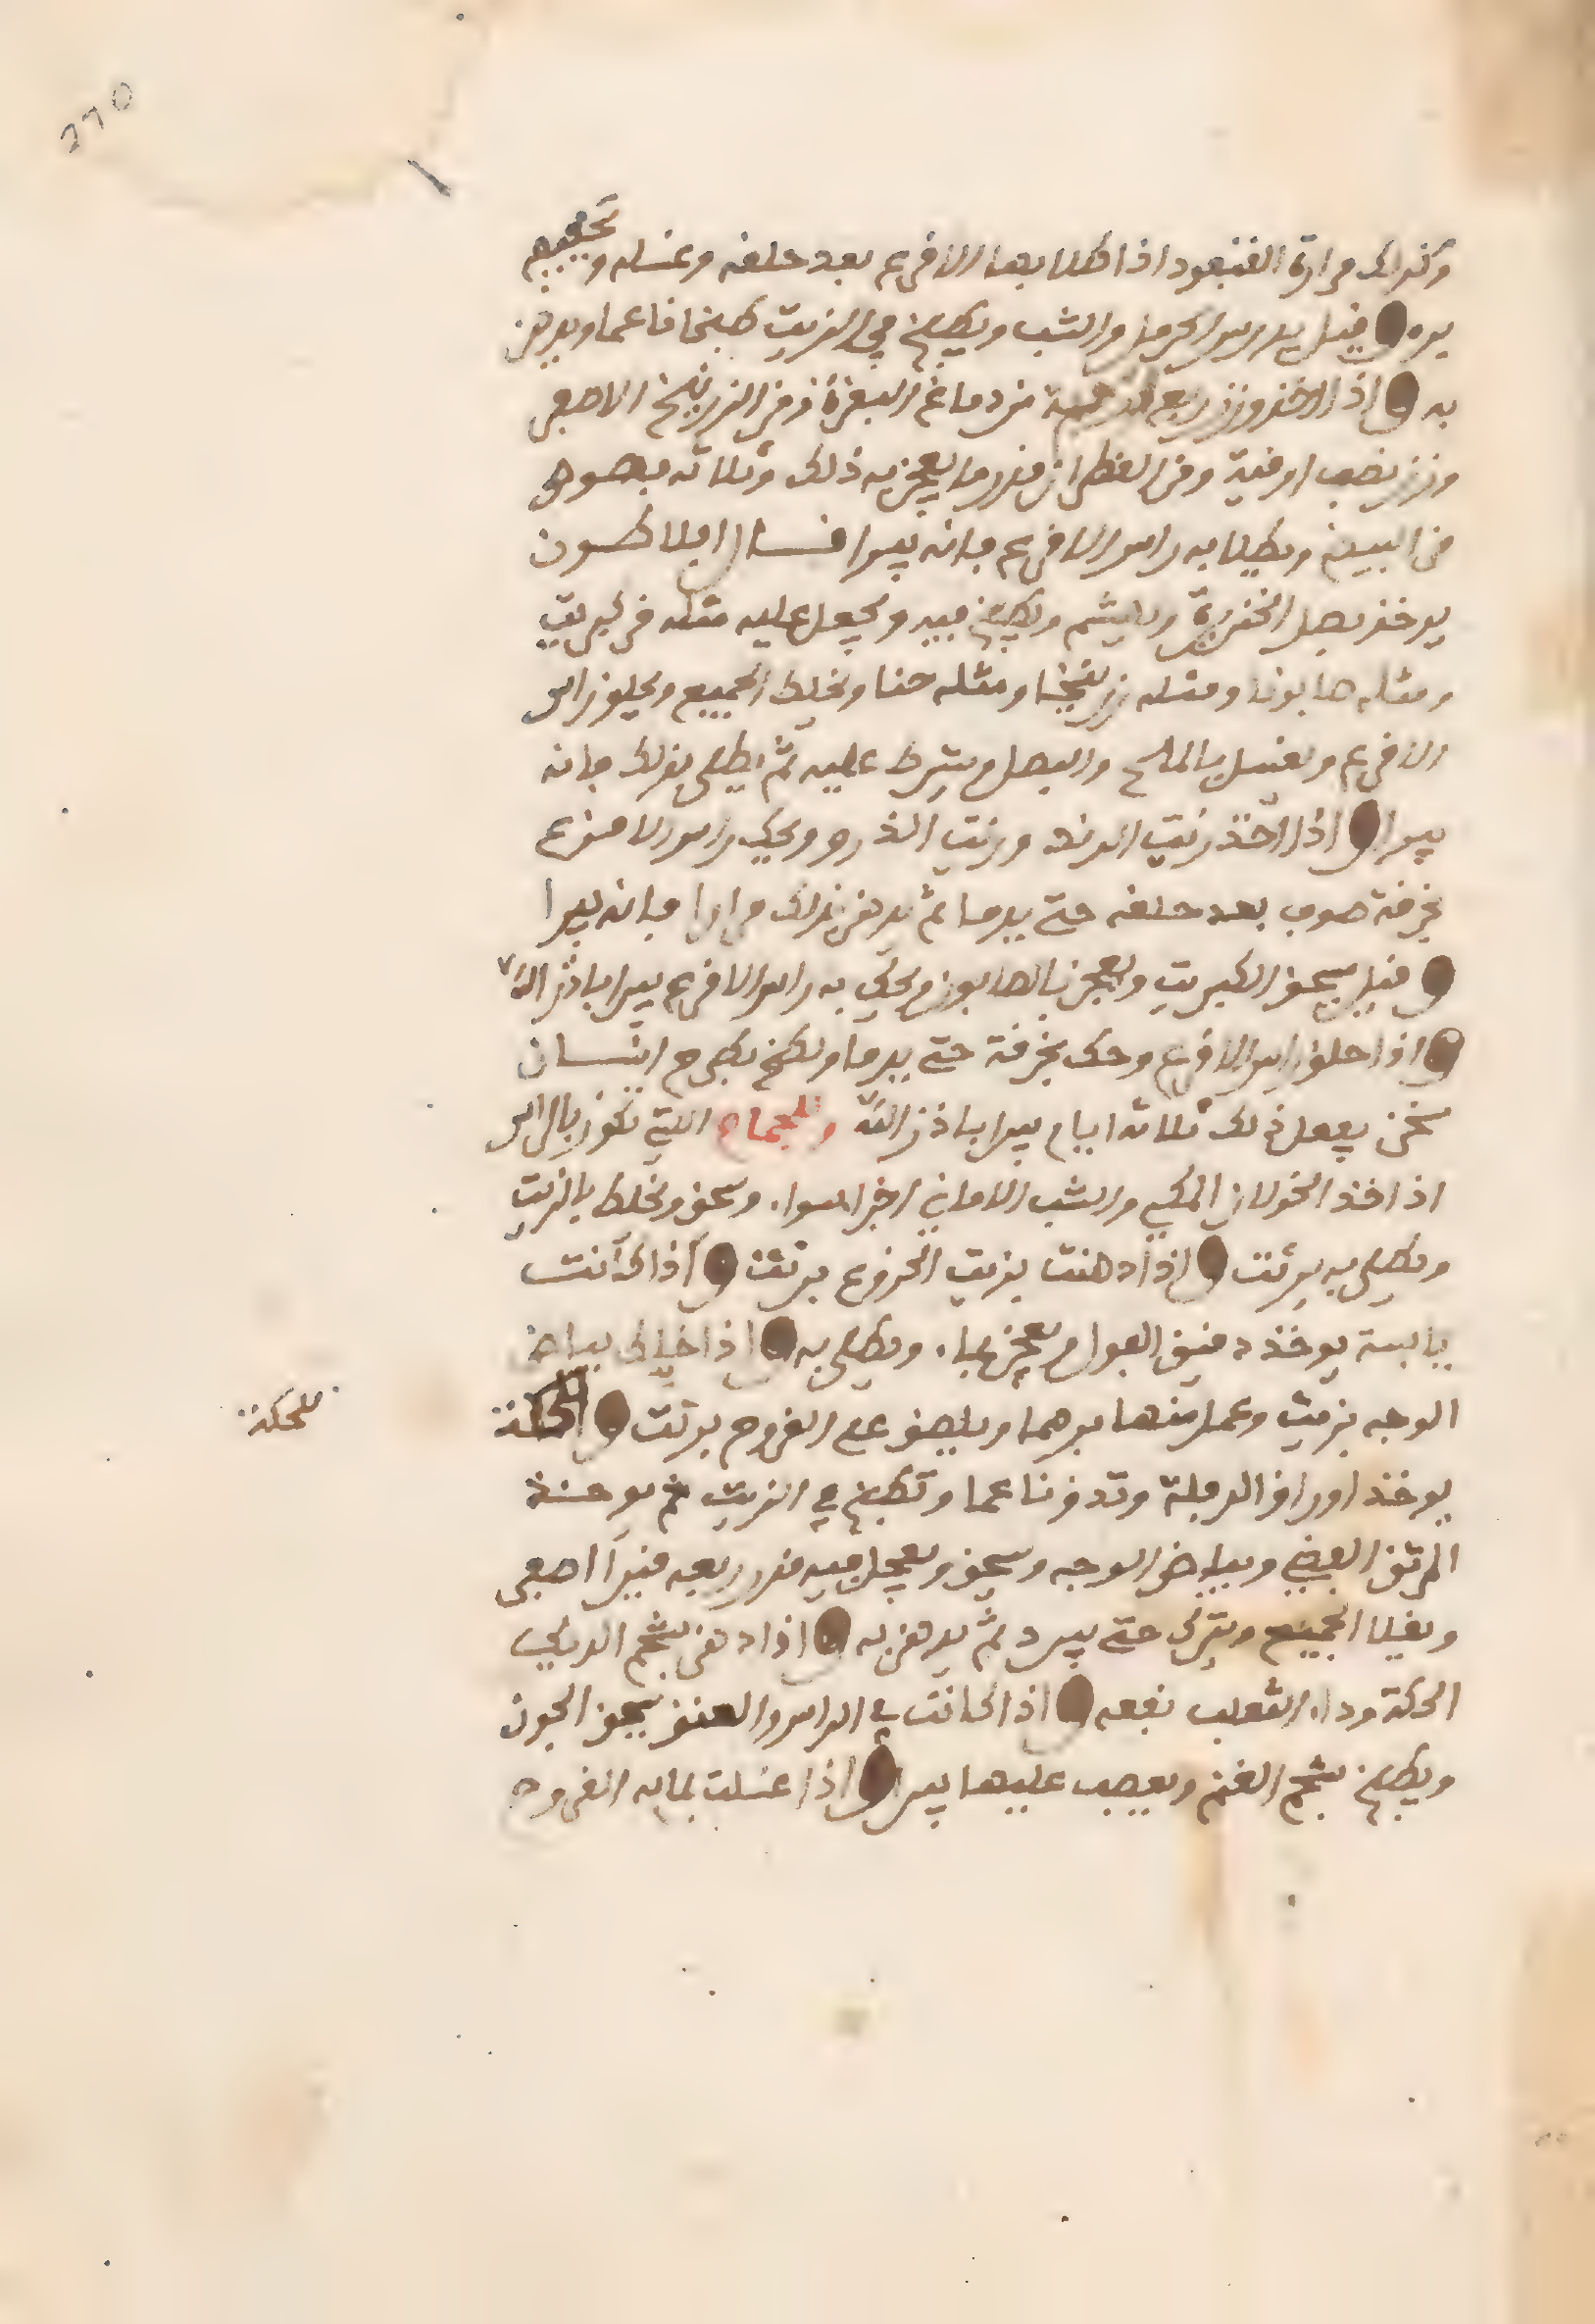 270
وكذلك مرارة القنفود اذا طلا بها الاقرع بعد حلفه وغسله وتجفيفه
يبره وقيل يدرس الحرمل والشب ويطبخ في الزيت طبخا ناعما ويدهن
به واذا اخذ وزن ربع اوقية من دماغ البقرة ومن الزرنيخ الاصفر
وزن نصف اوقية ومن القطران قدر ما يعجن به ذلك وثلاثة فصوص
من البيض ويطلا به راس الاقرع فانه يبرا قال افلاطون
يوخذ بصل الخنزير ويهشم ويطبخ فيه ويجعل عليه مثله من كبريت
ومثله صابونا ومثله زرنيخا ومثله حنا ويخلط الجميع ويحلق راس
الاقرع ويغسل بالملح والبصل ويشرط عليه ثم يطلى بذلك فانه
يبرا واذا اخذ زيت الرند وزيت الذرو ويحك راس الاقرع
بخرقة صوف بعد حلقه حتى يدما ثم يدهن بذلك مرارا فانه يبرا
وقيل يسحق الكبريت ويعجن بالصابون ويحك به راس الاقرع يبرا باذن الله
واذا حلق راس الاقرع وحك بخرقة حتى يدما ولطخ بطرح انسان
سخن يفعل ذلك ثلاثة ايام يبرا باذن الله وللجمام التي تكون بالراس
اذا اخذ الخولان المكي والشب اليماني اجزا سوا، وسحق ويخلط بالزيت
ويطلى به برئت واذا دهنت بزيت الخروع برئت واذا كانت
يابسة يوخذ دقيق الفول ويعجن بما، ويطلى به واذا خلط بياض
الوجه بزيت وعمل منها مرهما ويلصق على القروح برئت وللحكة
يوخذ اوراق الدفلة وتدق ناعما وتطبخ في الزيت ثم يوخذ
المرتق الفضي وبياض الوجه وسحق ويجعل فيه قدر ربعه قيرا اصفر
ويغلا الجميع ويترك حتى يبرد ثم يدهن به واذا دهن بشحم الدب
الحكة وداء الثعلب نفعه واذا كانت في الراس والعنق يسحق الجون
ويطبخ بشحم الغنم ويعصب عليها يبرا واذا غسلت بمايه القروح
للحكة